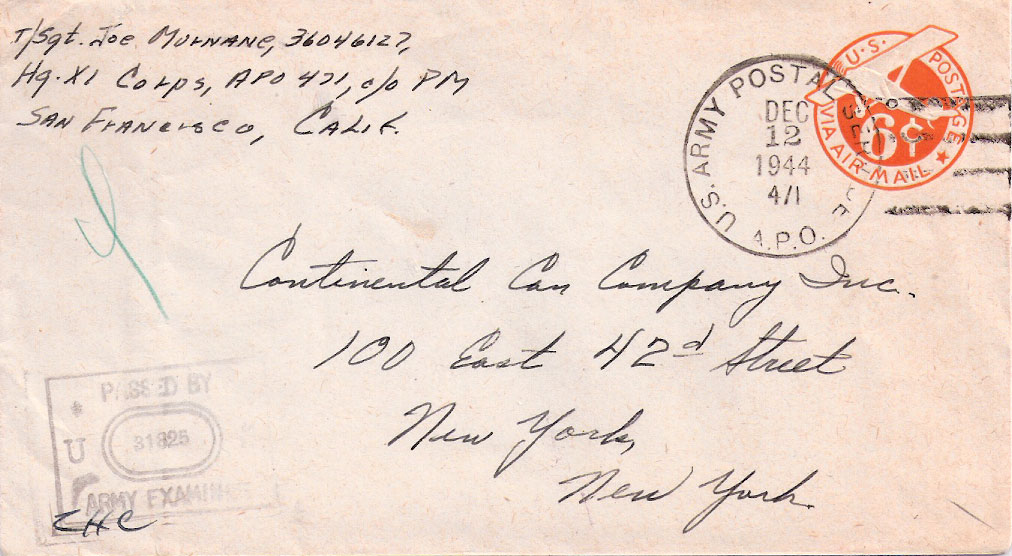 T/Sgt. Joe Murnane, 36046127,
Hq. XI Corps, APO 471, c/o PM
San Francisco, Calif.
U.S. POSTAGE
6¢
VIA AIR-MAIL
U.S. ARMY POSTAL SERVICE
DEC
12
1944
4/1
A.P.O.
Continental Can Company Inc.
100 East 42d Street
New York,
New York.
PASSED BY
U
31825
ARMY EXAMINER
CHC